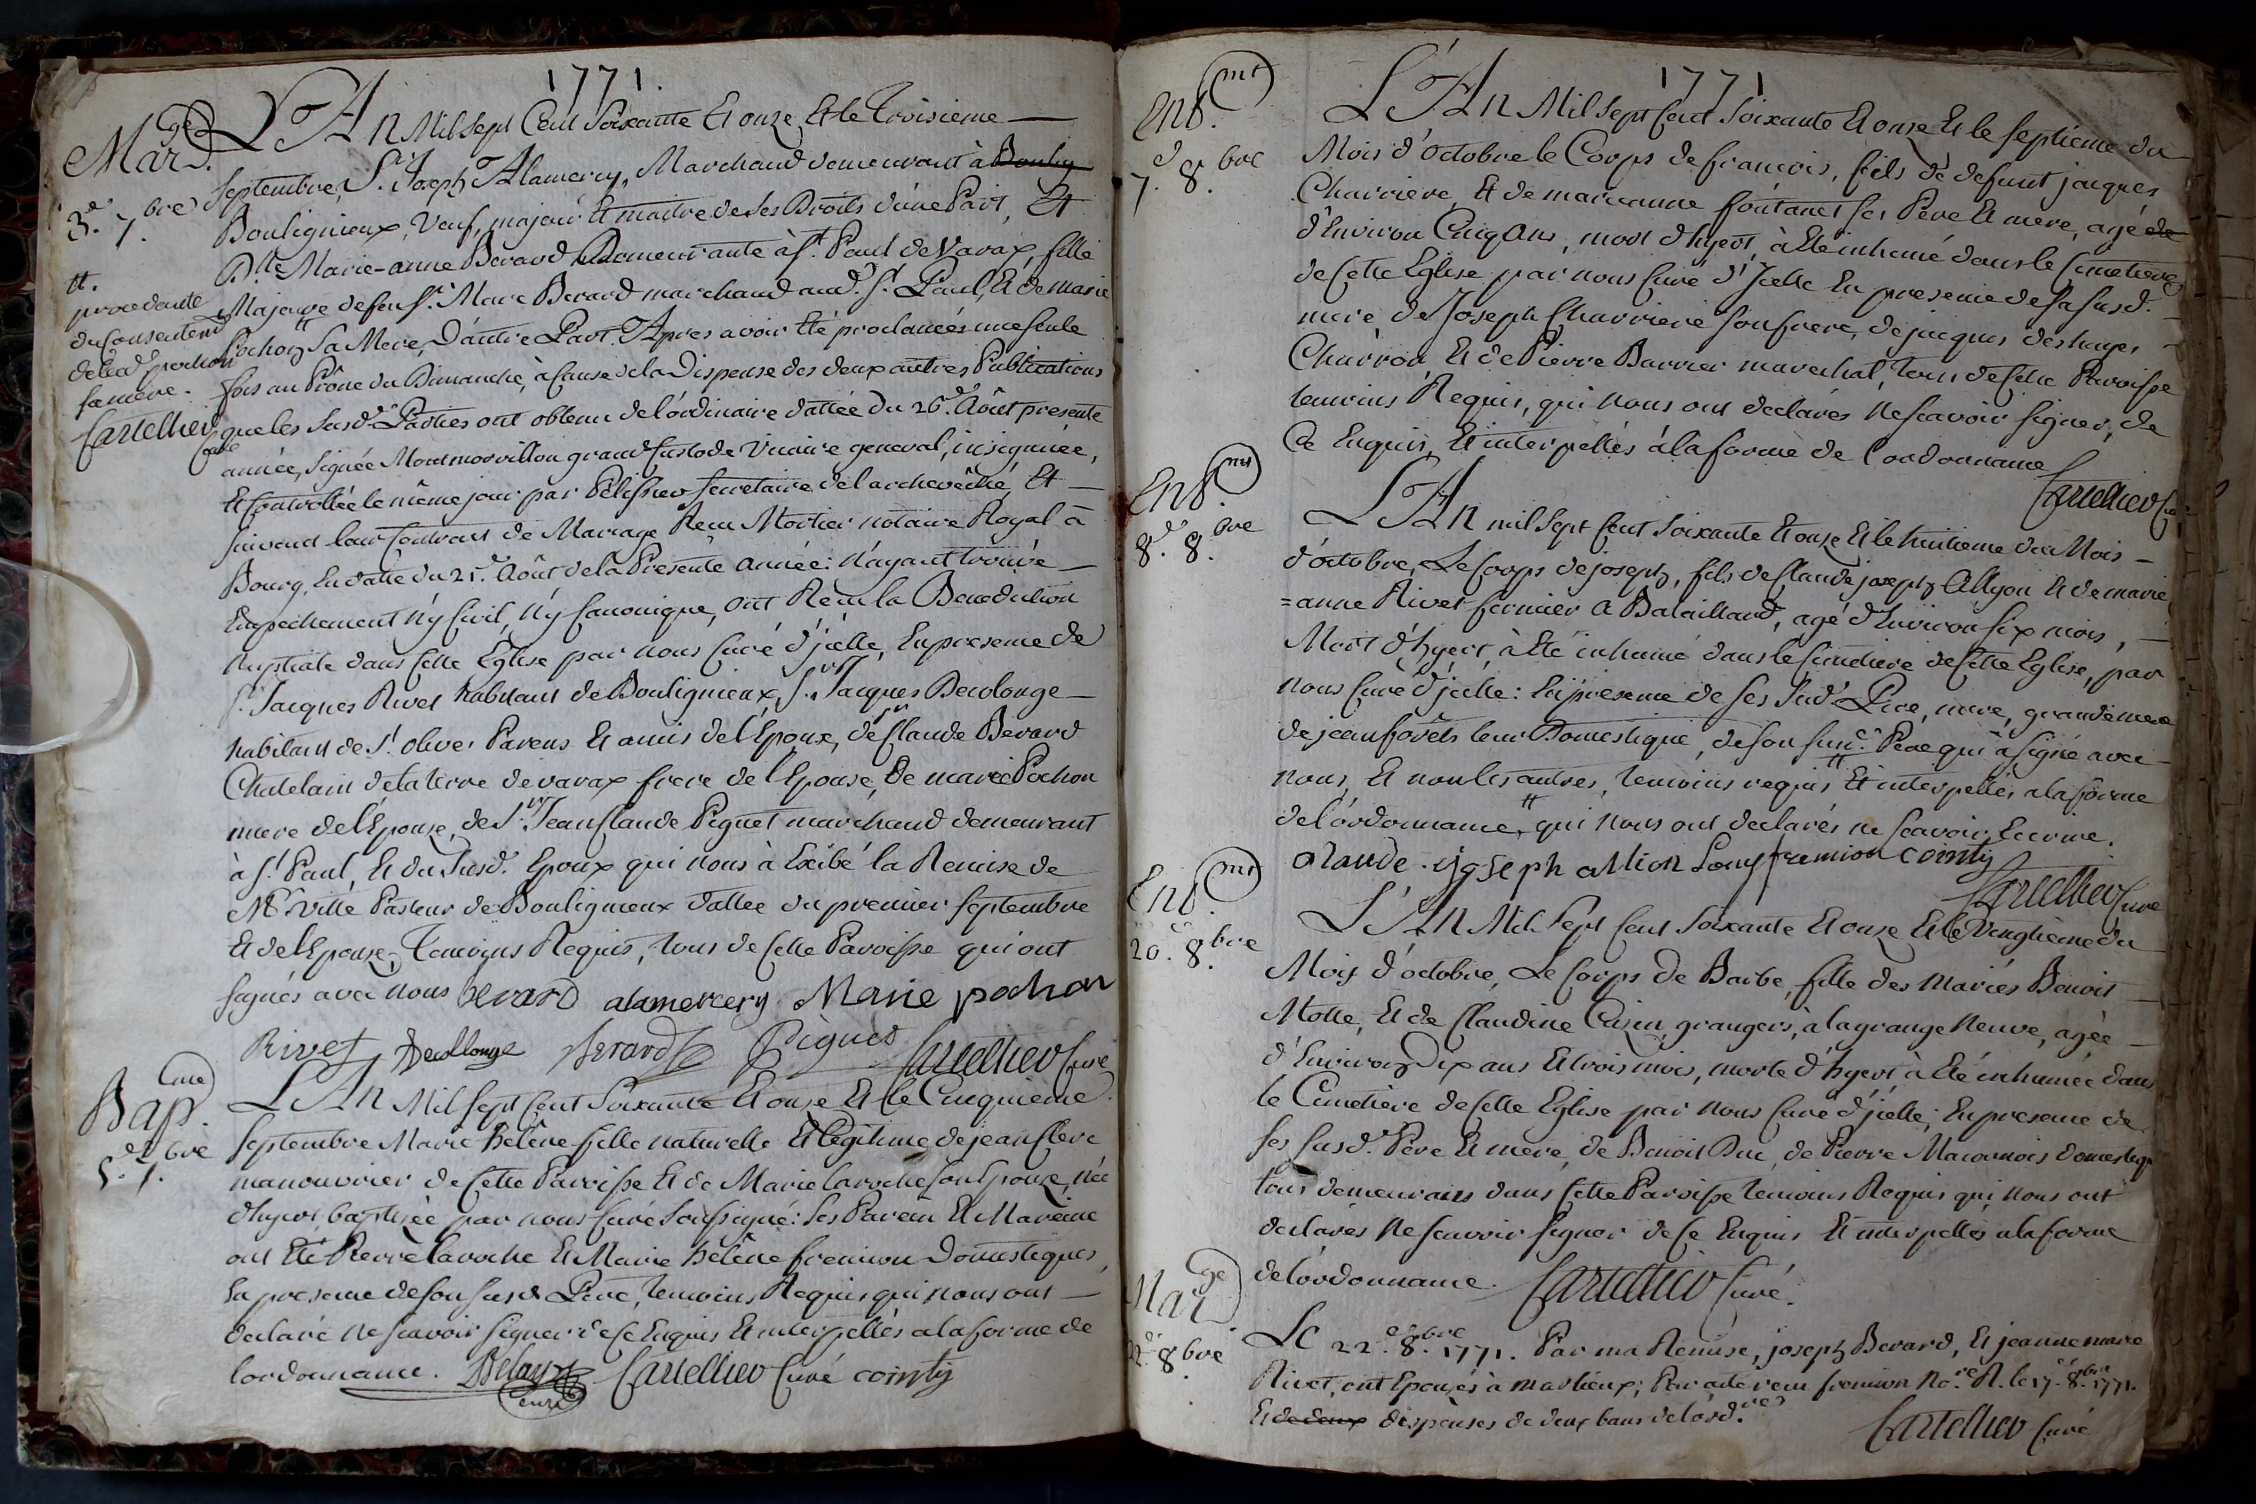 1771.
Mar.ge
3.e 7.bre
L'An Mil sept Cent Soixante Et onze, Et le Troisieme
Septembre, S.r Joseph Alamercery, Marchand demeurant à Bouligneux
Bouligneux, Veuf, majeur Et maitre de ses Droits d'une Part, Et
D.lle Marie-anne Berard Demeurante à S.t Paul de Varax, fille
Majeure de feu S.r Marc Berard marchand aud.t S.t Paul, Et de Marie
Pochon # Sa Mere, D'autre Part. Apres avoir Eté proclamés une seule
fois au Prône du Dimanche, à Cause de la Dispense des deux autres Publications
que les Susd.es Parties ont obtenu de l'ordinaire dattée du 26.e Août presente
année, signée Montmorillon grand Custode Vicaire general, insignuée,
Et Controllée le même jour par Pelissier Secretaire de l'archevêché, Et
suivant leur Contract de Mariage Recu Mortier notaire Royal à
Bourg, En datte du 25.e Août de la Presente année: N'ayant trouvé
Empechement Ny Civil, Ny Canonique, ont Recu la Benediction
Nuptiale dans Cette Eglise par nous Curé d'jcelle, En presence de
S.r Jacques Rivet habitant de Bouligneux, S.r Jacques Decolonge
habitant de S.t olive, Parens Et amis de l'Epoux, de S.r Claude Berard
Chatelain de la terre de varax frere de l'Epouse, De marie Pochon
mere de l'Epouse, de S.r Jean Claude Piguet marchand demeurant
à S.t Paul, Et du Susd.t Epoux qui nous à Exibé la Remise de
M.r Ville Pasteur de Bouligneux dattee du premier Septembre
Et de l'Epouse, Temoins Requis, tous de Cette Paroisse qui ont
signés avec nous berard alamercery Marie pochon
Rivet Decollonge Berard Piguet Cartellier Curé
#.
procedante
du Consentem.t
de lad.e pochon
sa mere.
Cartellier
Curé
Bap.me
5.e 7.bre
L'An Mil sept Cent Soixante Et onze Et le Cinquieme
Septembre Marie helêne fille naturelle Et legitime de jean Clerc
manouvrier de Cette Paroisse Et de Marie Laroche son Epouse, née
d'hyer, baptisée par nous Curé Soussigné: Ses Parein Et Mareine
ont Eté Pierre laroche Et Marie helêne fremion Domestiques,
En presence de son susd.t Pere, temoins Requis qui nous ont
declaré Ne scavoir signer de Ce Enquis Et interpellés a la forme de
l'ordonnance. Delay Curé Cartellier Curé cointy
1771
Ent.mt
7.e 8.bre
L'An Mil Sept Cent Soixante Et onze Et le Septieme du
Mois d'Octobre le Corps de francois, fils de defunt jacques
Charriere, Et de marieanne fontanet ses Pere Et mere, agé de
d'Environ Cinq Ans, mort d'hyert, à Eté inhumé dans le Cimetiere
de Cette Eglise par nous Curé d'Jcelle En presence de sa susd.e
mere de Joseph Charriere son frere, de jacques deshayes
Charron, Et de Pierre Barrier marechal, tous de Cette Paroisse
temoins Requis, qui nous ont declarés Ne Scavoir Signer, de
Ce Enquis, Et interpellés à la forme de l'ordonnance
Cartellier Curé
Ent.mt
8.e 8.bre
L'An mil Sept Cent Soixante Et onze Et le huitieme du Mois
d'octobre, Le Corps de joseph, fils de Claude joseph Allyon Et de marie
=anne Rivet fermier a Bataillard, agé d'Environ six mois,
Mort d'hyert, à Eté inhumé dans le Cimetiere de Cette Eglise, par
nous Curé d'jcelle: En presence de ses Susd.ts Pere, mere, grandemere
de jean forêts leur Domestique, de son susd.t Pere qui à signé avec
nous, Et non les autres, temoins requis # Et interpellés a la forme
de l'ordonnance, # qui nous ont declarés ne scavoir Ecrire.
claude joseph allion Louy fremion cointy
Cartellier Curé
Ent.mt
20.e 8.bre
L'An Mil Sept Cent Soixante Et onze Et le Vingtieme du
Mois d'octobre, Le Corps de Barbe, fille des Mariés Benoit
Motte, Et de Claudine Cusin, grangers, à la grange Neuve, agée
d'Environ Dix ans Et trois mois, morte d'hyert, à Eté inhumée dans
le Cimetiere de Cette Eglise par nous Curé d'jcelle; En presence de
ses susd.ts Pere Et mere, de Benoit Duc, de Pierre Maconnois domestique
tous demeurans dans Cette Paroisse temoins Requis qui nous ont
declarés Ne scavoir signer de Ce Enquis Et interpellés a la forme
de l'ordonnance. Cartellier Curé.
Mar.ge
22.e 8.bre
Le 22.e 8.bre 1771. Par ma Remise, joseph Berard, Et jeanne marie
Rivet, ont Epousés à marlieux; Par acte recu fremion No.re R. le 17.e 8.bre 1771.
Et de deux dispenses de deux bans de l'ord.re
Cartellier Curé